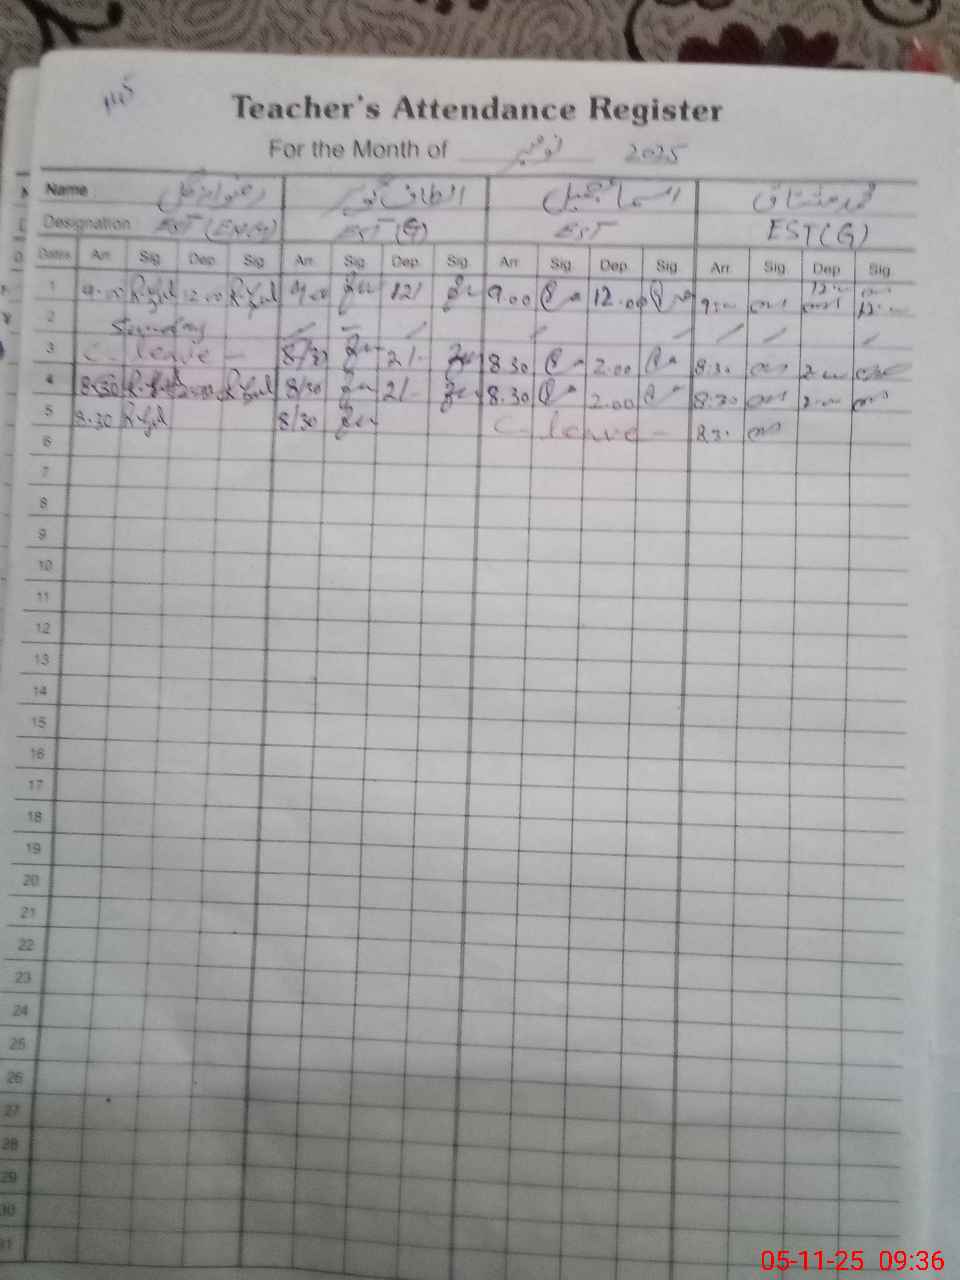 Teacher's Attendance Register
For the Month of نومبر 2025
Name رضوانہ الطاف اسماء جمیل محمد مشتاق
Designation EST (ENG) EST (G) EST EST (G)
Dates Arr. Sig. Dep. Sig. Arr. Sig. Dep. Sig. Arr. Sig. Dep. Sig. Arr. Sig. Dep. Sig.
1 9.00 12.00 9.00 12/ 9.00 12.00 9.00 12.00
2 Sunday
3 C. leave - 8/30 2/- 8.30 2.00 8.30 2.00
4 8.30 2.00 8/30 2/- 8.30 2.00 8.30 2.00
5 8.30 8/30 C. leave - 8.30
6
7
8
9
10
11
12
13
14
15
16
17
18
19
20
21
22
23
24
25
26
27
28
29
30
31
05-11-25 09:36